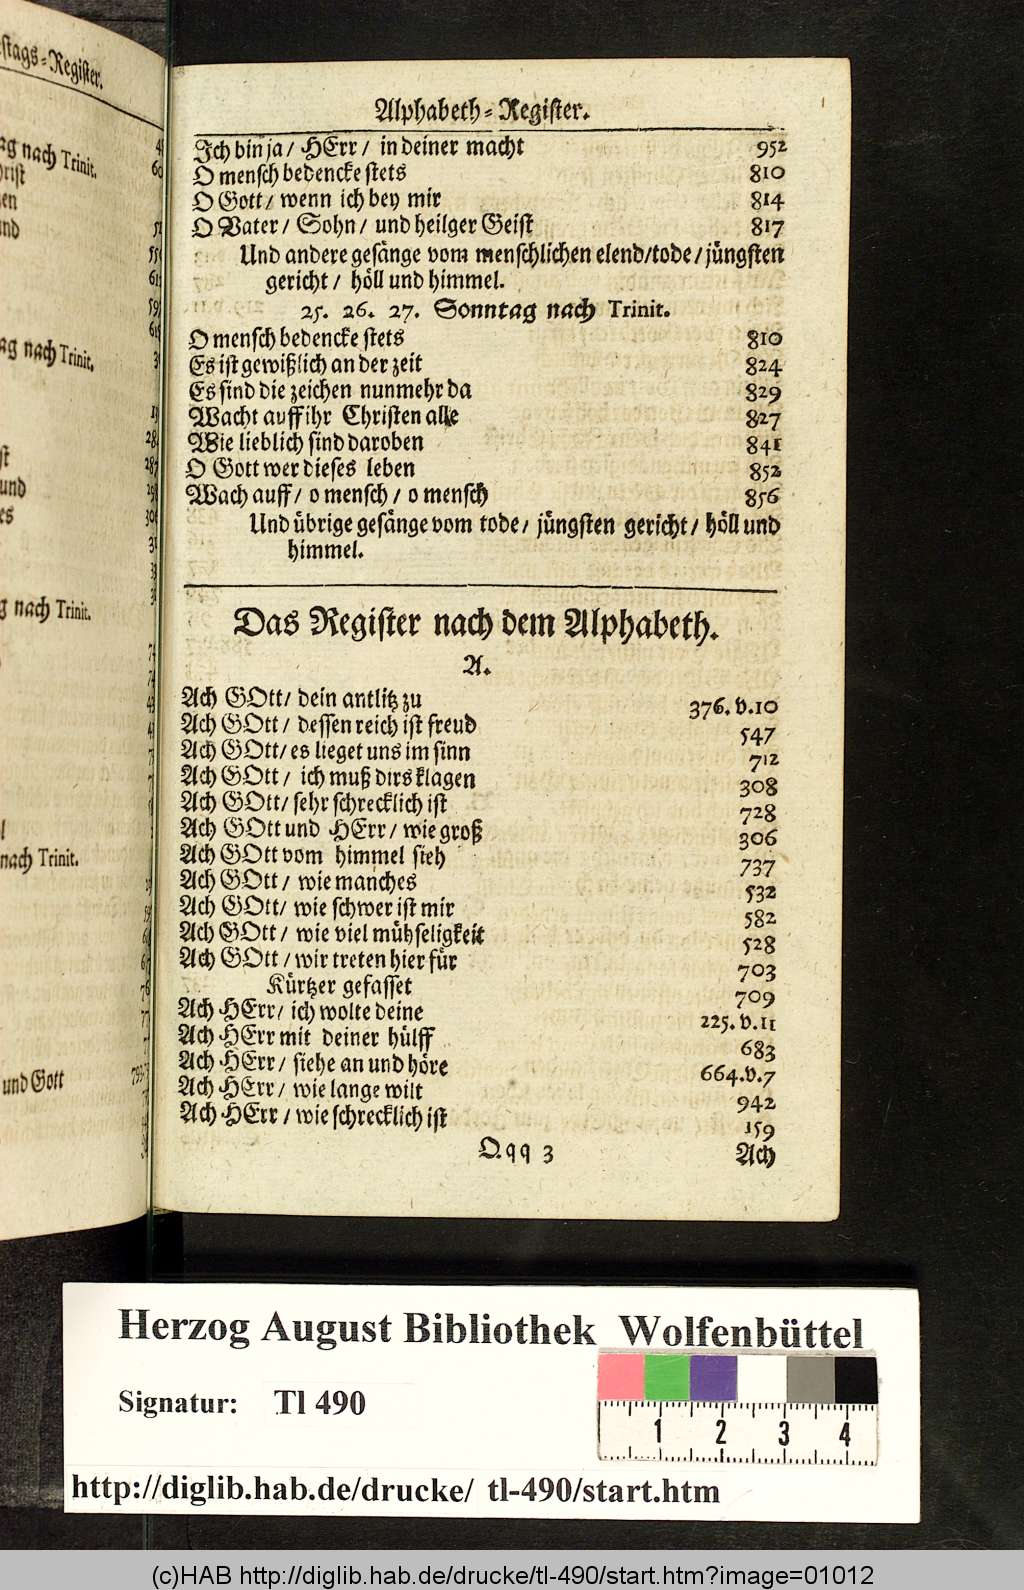 Alphabeth-Register.
Ich bin ja / HErr / in deiner macht 952
O mensch bedencke stets 810
O Gott / wenn ich bey mir 814
O Vater / Sohn / und heilger Geist 817
Und andere gesänge vom menschlichen elend / tode / jüngsten
gericht / höll und himmel.
25. 26. 27. Sonntag nach Trinit.
O mensch bedencke stets 810
Es ist gewißlich an der zeit 824
Es sind die zeichen nunmehr da 829
Wacht auff ihr Christen alle 827
Wie lieblich sind daroben 841
O Gott wer dieses leben 852
Wach auff / o mensch / o mensch 856
Und übrige gesänge vom tode / jüngsten gericht / höll und
himmel.
Das Register nach dem Alphabeth.
A.
Ach GOtt / dein antlitz zu 376. v. 10
Ach GOtt / dessen reich ist freud 547
Ach GOtt / es lieget uns im sinn 712
Ach GOtt / ich muß dirs klagen 308
Ach GOtt / sehr schrecklich ist 728
Ach GOtt und HErr / wie groß 306
Ach GOtt vom himmel sieh 737
Ach GOtt / wie manches 532
Ach GOtt / wie schwer ist mir 582
Ach GOtt / wie viel mühseligkeit 528
Ach GOtt / wir treten hier für 703
Kürtzer gefasset 709
Ach HErr / ich wolte deine 225. v. 11
Ach HErr mit deiner hülff 683
Ach HErr / siehe an und höre 664. v. 7
Ach HErr / wie lange wilt 942
Ach HErr / wie schrecklich ist 159
Qqq 3 Ach
-Register.
nach Trinit.
und
nach Trinit.
und
nach Trinit.
nach Trinit.
und Gott
Herzog August Bibliothek Wolfenbüttel
Signatur: Tl 490
1 2 3 4
http://diglib.hab.de/drucke/ tl-490/start.htm
(c)HAB http://diglib.hab.de/drucke/tl-490/start.htm?image=01012